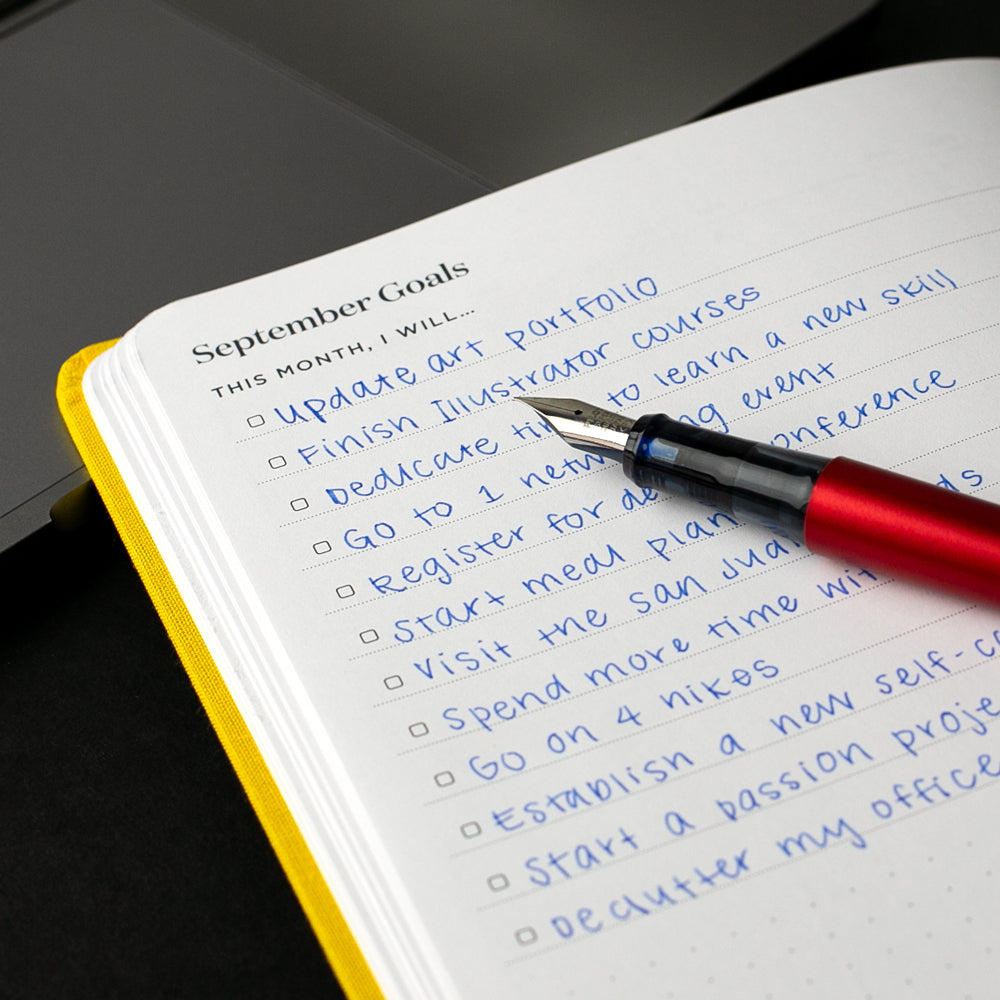 September Goals
THIS MONTH, I WILL...
update art portfolio
Finish Illustrator courses
Dedicate to learn a new skill
Go to 1 event
Register for conference
Start meal
Visit the san Juan
Spend more time with
Go on 4 hikes
Establish a new
Start a passion
Declutter my office